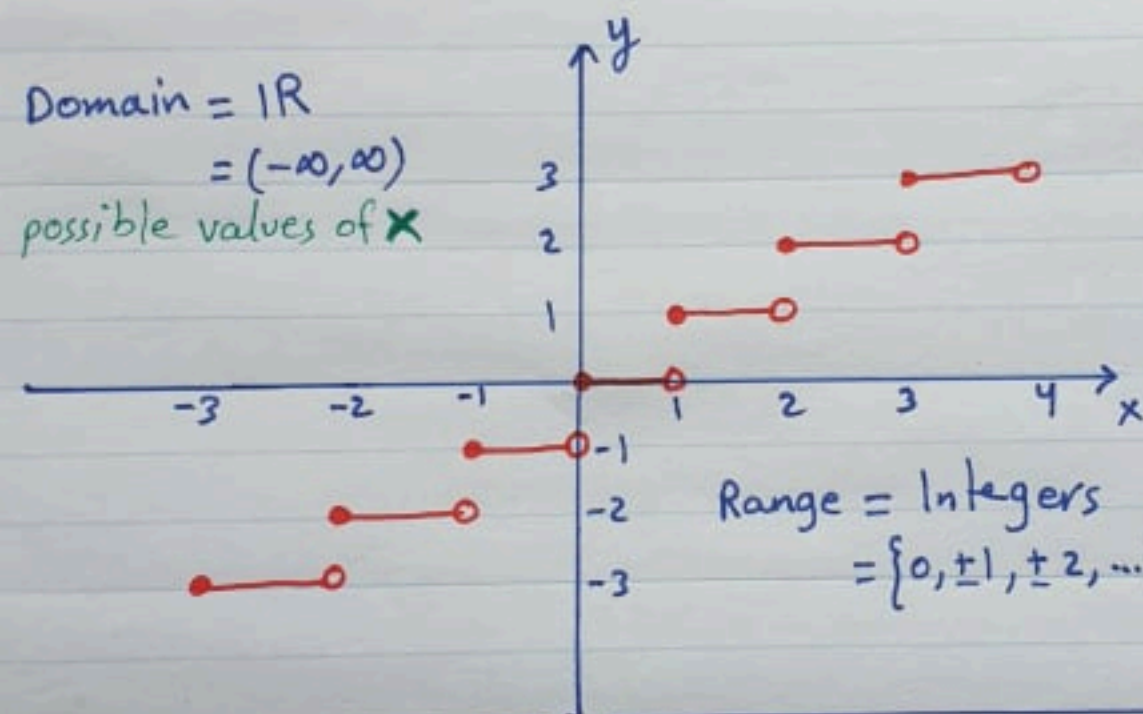 y
Domain = IR
= (-∞, ∞)
possible values of x
3
2
1
-3 -2 -1 1 2 3 4 x
-1
-2
Range = Integers
= {0, ±1, ±2, ...
-3